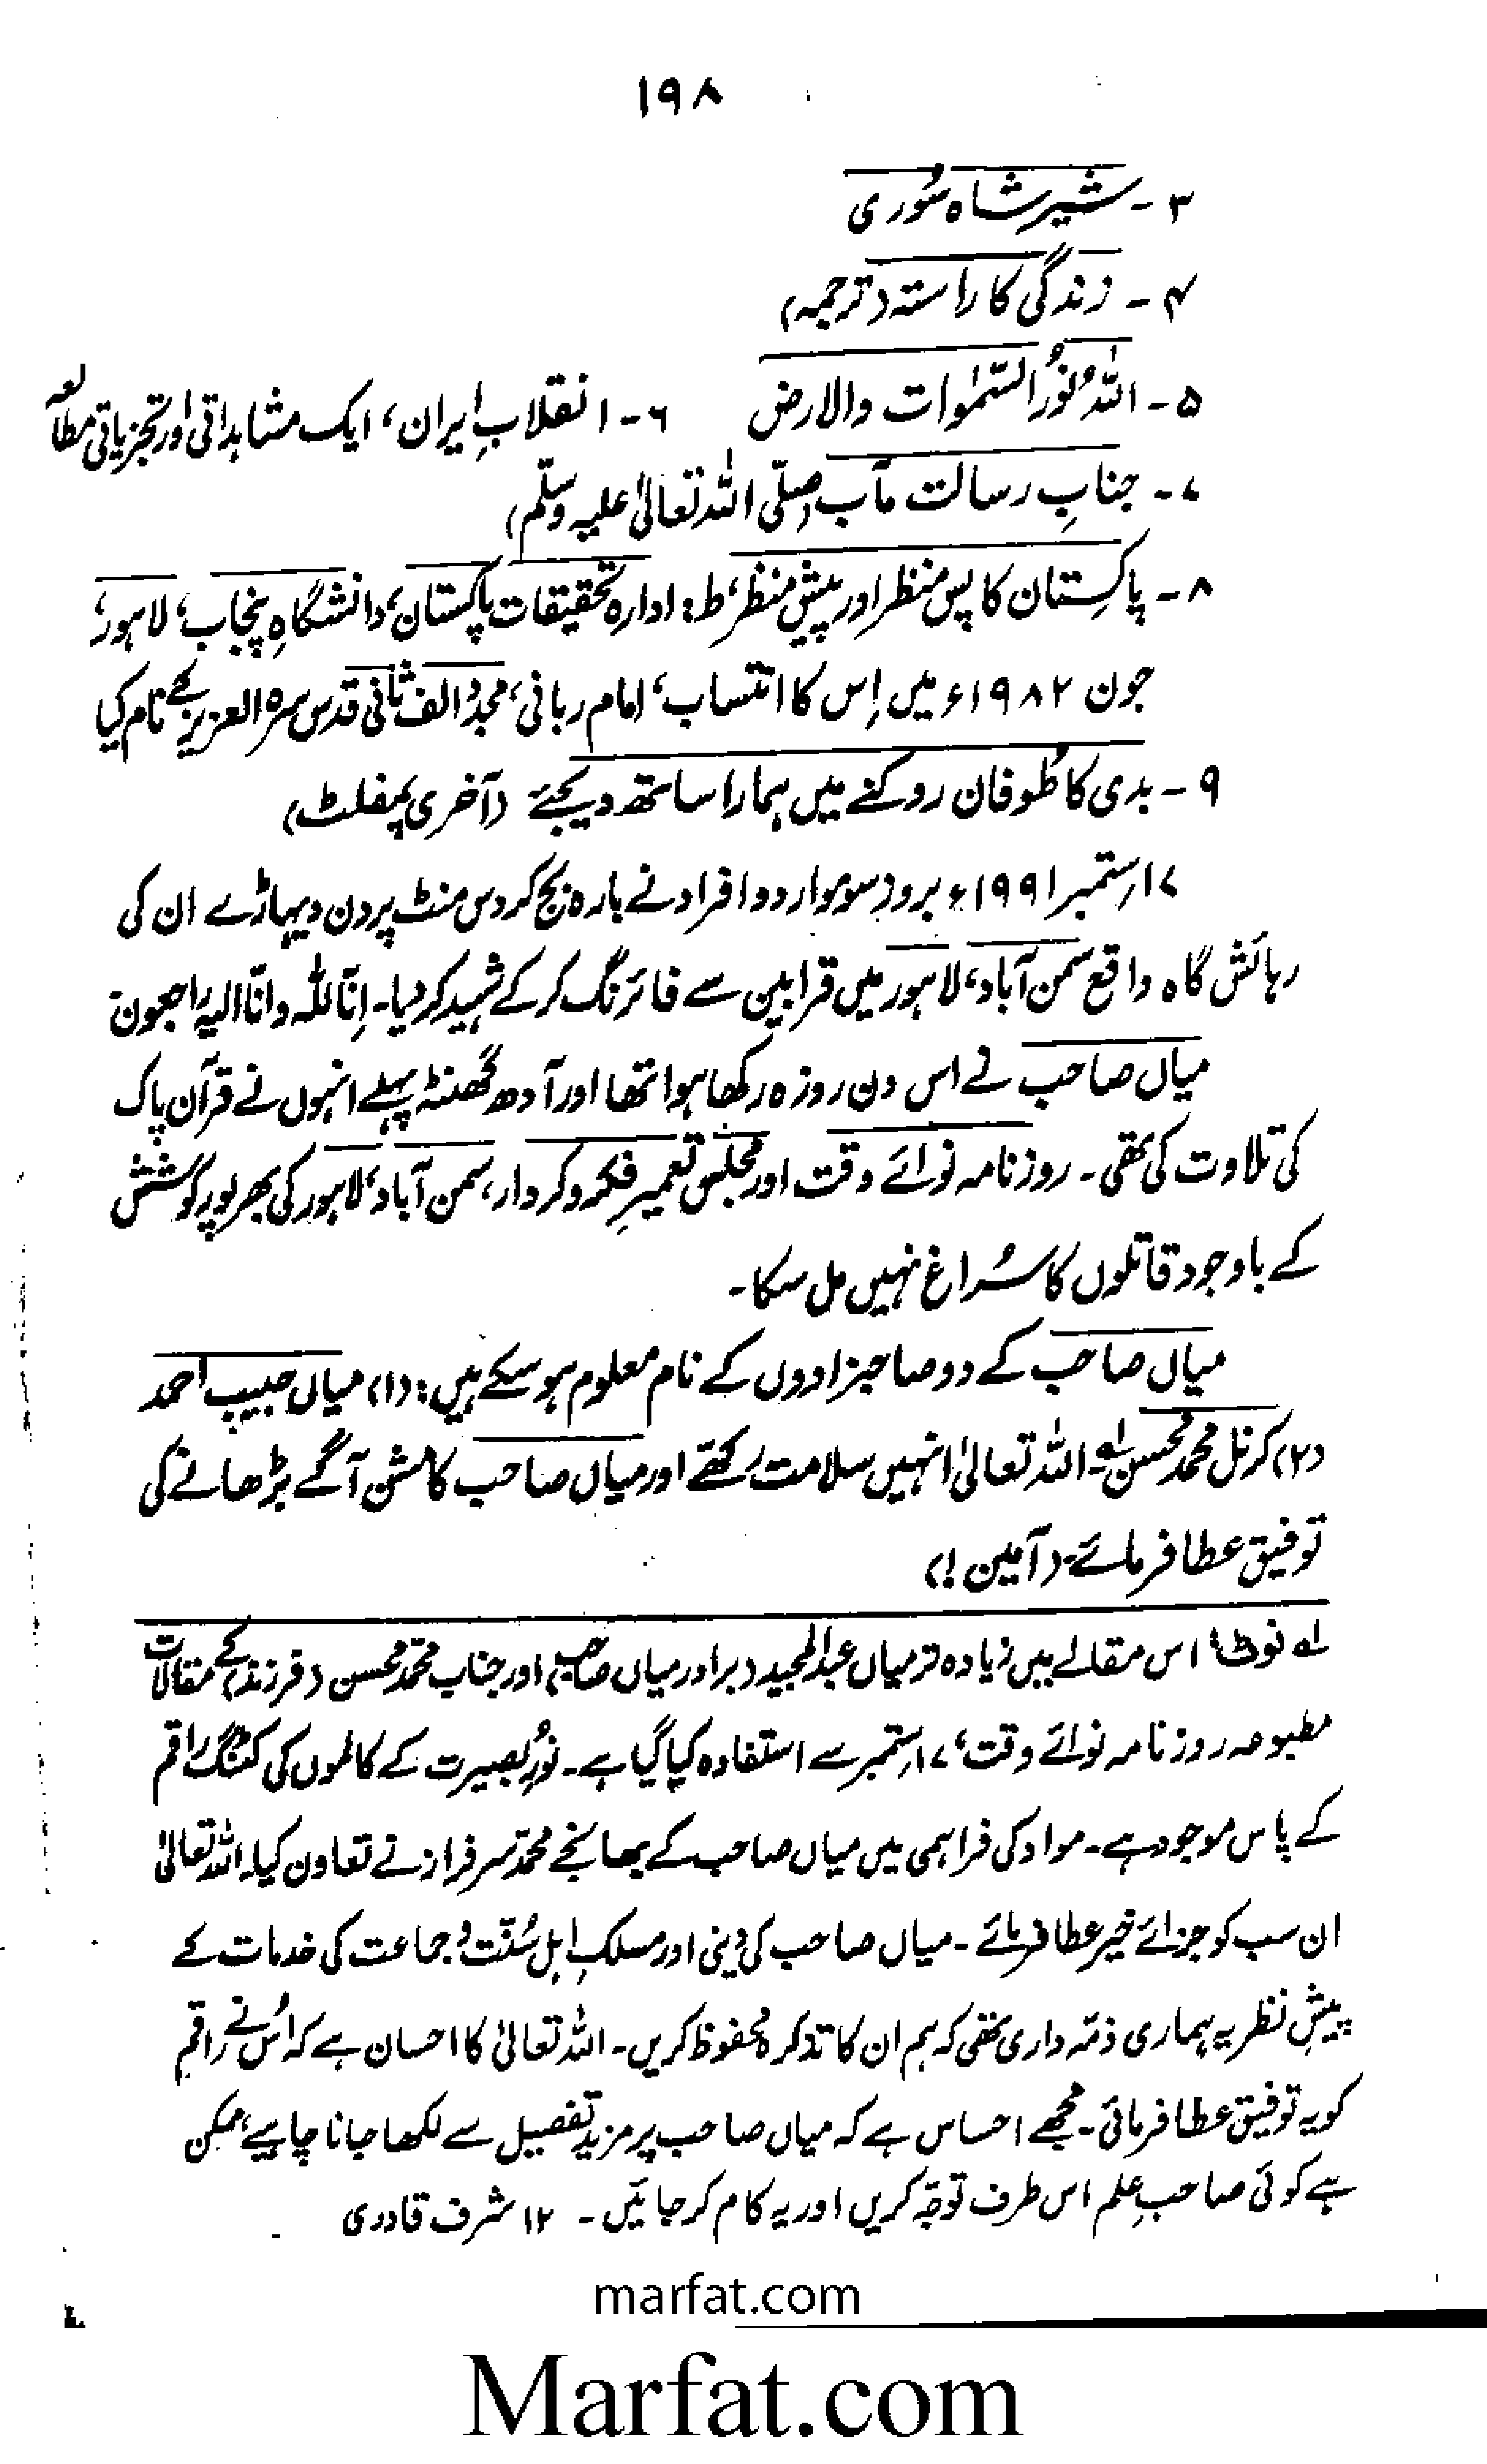 ۱۹۸
۳ - شیر شاہ سُوری
۴ - زندگی کا راستہ (ترجمہ)
۵ - اللہُ نُورُ السَّمٰوات والارض ۶ - انقلابِ ایران، ایک مشاہداتی اور تجزیاتی مطالعہ
۷ - جنابِ رسالت مآب (صلّی اللہ تعالیٰ علیہ وسلّم)
۸ - پاکستان کا پس منظر اور پیش منظر، ط: ادارہ تحقیقات پاکستان، دانشگاہِ پنجاب، لاہور،
جون ۱۹۸۲ء میں اِس کا انتساب، امام ربانی، مجدد الف ثانی قدس سرہ العزیز کے نام کیا
۹ - بدی کا طُوفان روکنے میں ہمارا ساتھ دیجئے (آخری پمفلٹ)
۱۷ ستمبر ۱۹۹۱ء بروز سوموار دو افراد نے بارہ بج کر دس منٹ پر دن دیہاڑے ان کی
رہائش گاہ واقع سمن آباد، لاہور میں قرابین سے فائرنگ کرکے شہید کر دیا۔ اِنّا للّٰہ وانّا الیہ راجعون
میاں صاحب نے اس دن روزہ رکھا ہوا تھا اور آدھ گھنٹہ پہلے انہوں نے قرآن پاک
کی تلاوت کی تھی۔ روزنامہ نوائے وقت اور مجلس تعمیرِ فکر و کردار، سمن آباد، لاہور کی بھرپور کوشش
کے باوجود قاتلوں کا سُراغ نہیں مل سکا۔
میاں صاحب کے دو صاحبزادوں کے نام معلوم ہو سکے ہیں: (۱) میاں حبیب احمد
(۲) کرنل محمد محسن لہ۔ اللہ تعالیٰ انہیں سلامت رکھے اور میاں صاحب کا مشن آگے بڑھانے کی
توفیق عطا فرمائے۔ (آمین!)
لہ نوٹ: اس مقالے میں زیادہ تر میاں عبدالمجید (برادر میاں صاحب) اور جناب محمد محسن (فرزند) کے مقالات
مطبوعہ روزنامہ نوائے وقت، ۱۷ ستمبر سے استفادہ کیا گیا ہے۔ نُورِ بصیرت کے کالموں کی کٹنگ راقم
کے پاس موجود ہے۔ مواد کی فراہمی میں میاں صاحب کے بھانجے محمد سرفراز نے تعاون کیا۔ اللہ تعالیٰ
ان سب کو جزائے خیر عطا فرمائے۔ میاں صاحب کی دینی اور مسلکِ اہلِ سُنّت و جماعت کی خدمات کے
پیشِ نظر یہ ہماری ذمّہ داری تھی کہ ہم ان کا تذکرہ محفوظ کریں۔ اللہ تعالیٰ کا احسان ہے کہ اُس نے راقم
کو یہ توفیق عطا فرمائی۔ مجھے احساس ہے کہ میاں صاحب پر مزید تفصیل سے لکھا جانا چاہیے، ممکن
ہے کوئی صاحبِ علم اس طرف توجّہ کریں اور یہ کام کر جائیں۔ ۱۲ شرف قادری
marfat.com
Marfat.com